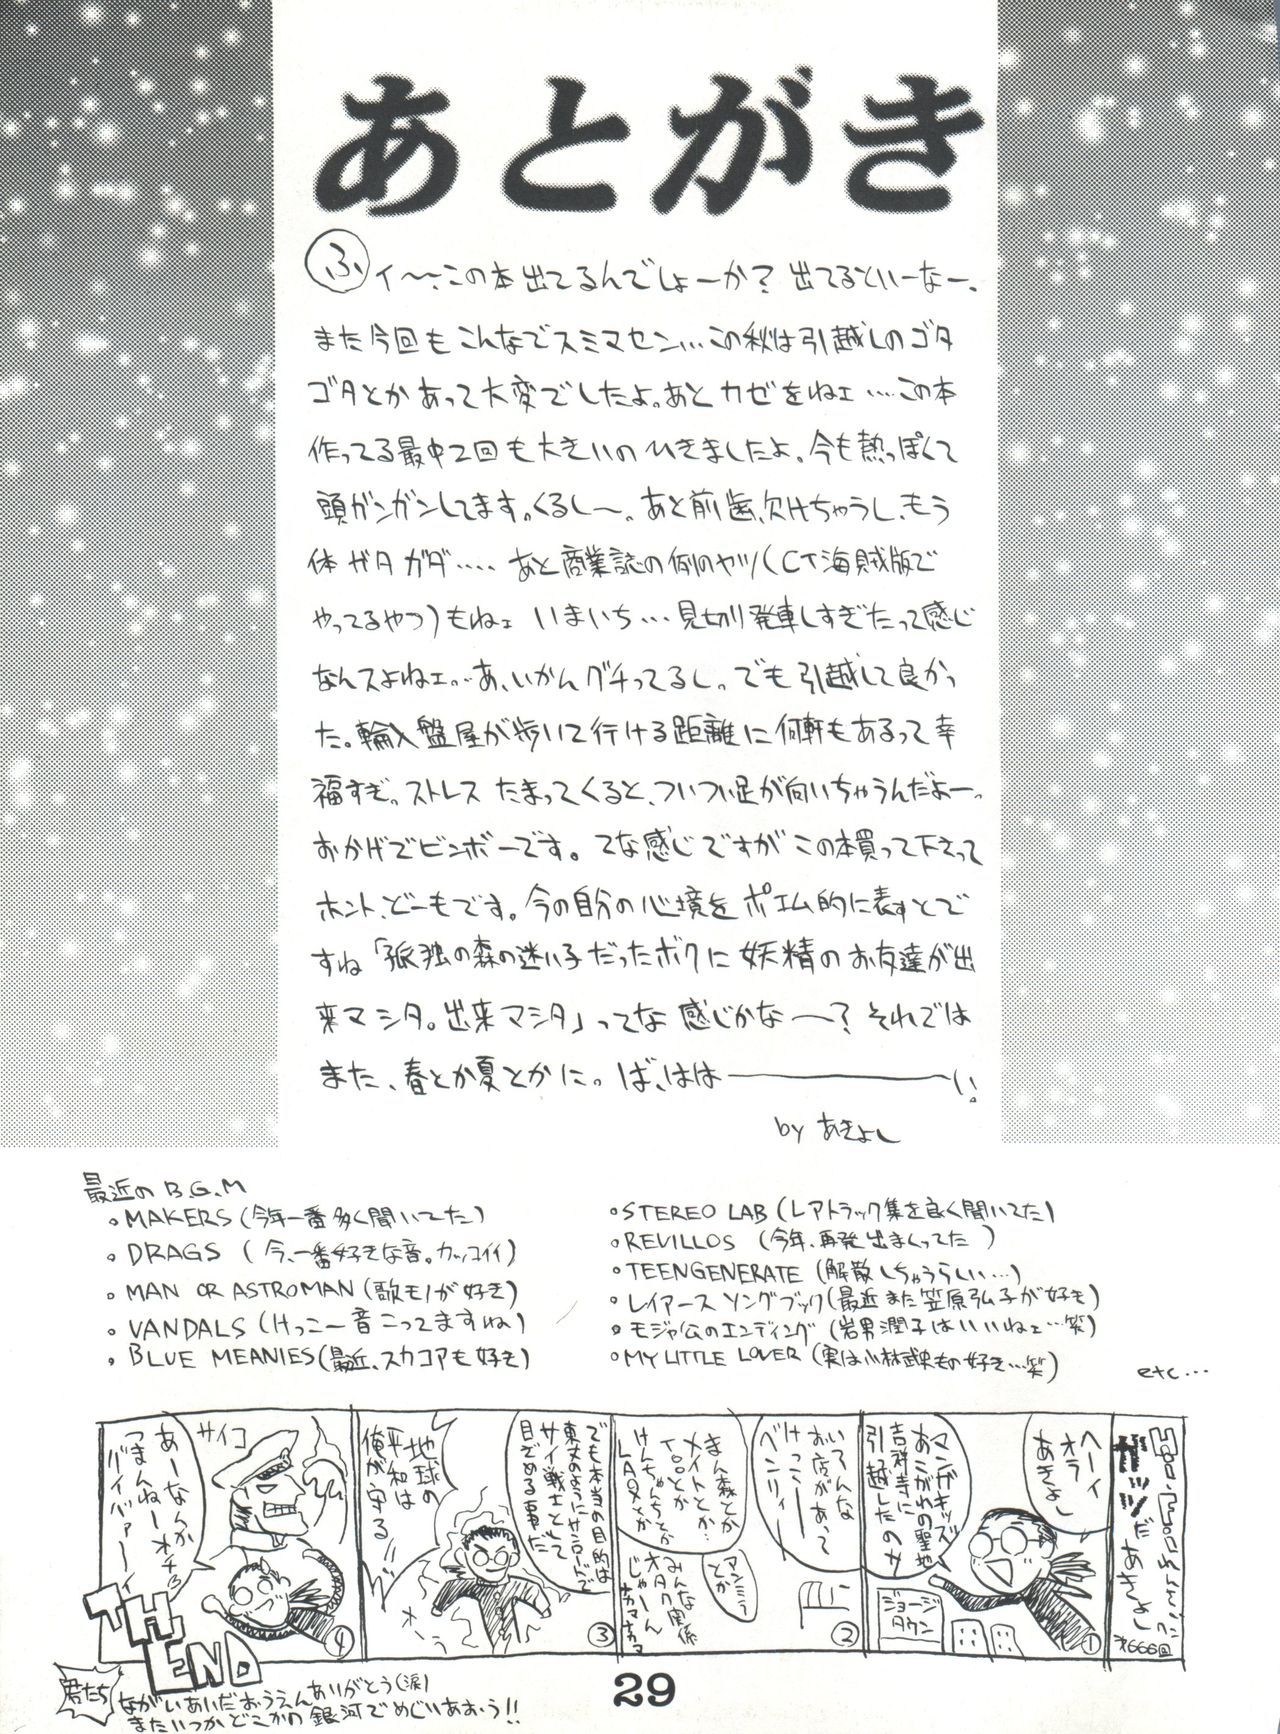 あとがき
ふィ〜、この本出てるんでしょーか？ 出てるといーなー、
また今回もこんなでスミマセン…この秋は引越しのゴタ
ゴタとかあって大変でしたよ。あとカゼをねェ……この本
作ってる最中2回も大きいのひきましたよ。今も熱っぽくて
頭ガンガンしてます。くるし〜。あと前歯、欠けちゃうし、もう
体ガタガタ…‥ あと商業誌の例のヤツ(CT海賊版で
やってるやつ)もねェ いまいち…見切り発車しすぎたって感じ
なんスよねェ…あ、いかんグチってるし。でも引越して良かっ
た。輸入盤屋が歩いて行ける距離に何軒もあるって幸
福すぎ。ストレスたまってくると、ついつい足が向いちゃうんだよー。
おかげでビンボーです。てな感じですがこの本買って下さって
ホント、どーもです。今の自分の心境をポエム的に表すとで
すね「孤独の森の迷い子だったボクに妖精のお友達が出
来マシタ。出来マシタ」ってな感じかな〜？それでは
また、春とか夏とかに。ば、はは――――い。
by あきよし
最近のB.G.M
。MAKERS(今年一番多く聞いてた)
。DRAGS (今、一番好きな音。カッコイイ)
。MAN OR ASTROMAN(歌モノが好き)
。VANDALS(けっこー音こってますね)
。BLUE MEANIES(最近、スカコアも好き)
。STEREO LAB(レアトラック集を良く聞いてた)
。REVILLOS (今年、再発出まくってた)
。TEENGENERATE(解散しちゃうらしい…)
。レイアースソングブック(最近また笠原弘子が好き)
。モジャ公のエンディング(岩男潤子はいいねェ…笑)
。MY LITTLE LOVER(実は小林武史もの好き…笑)
etc…
ガッツだ あきよし
才666回
ヘーイ
オラ
あきよし
マンガキッズ
あこがれの聖地
吉祥寺に
引越したのサ
ジョージ
タウン
①
いろんな
お店があって
けっこー
ベンリィ
まん森とか
メイトとか…
Tooとか
けんちゃんちとか
LAOXとか
アンミラ
とか
みんな
オタク関係
じゃーん
ナカマナカマ
②
でも本当の目的は
東丈のように吉祥寺で
サイ戦士として
目ざめる事だ
地球の
平和は
俺が守る!!
③
サイコ
あーなんか
つまんねーオチ
バイバァーイ
④
TH
END
君たち
ながいあいだおうえんありがとう(涙)
またいつかどこかの銀河でめぐりあおう!!
29